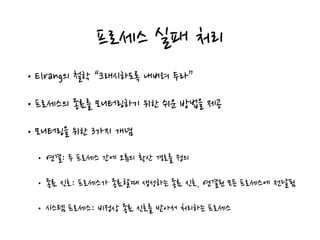 프로세스 실패 처리
• Elrang의 철학 “크래시하도록 내버려 두라”
• 프로세스의 종료를 모니터링하기 위한 쉬운 방법을 제공
• 모니터링을 위한 3가지 개념
• 연결: 두 프로세스 간에 오류의 확산 경로를 정의
• 종료 신호: 프로세스가 종료할때 생성하는 종료 신호, 연결된 모든 프로세스에 전달됨
• 시스템 프로세스: 비정상 종료 신호를 받아서 처리하는 프로세스